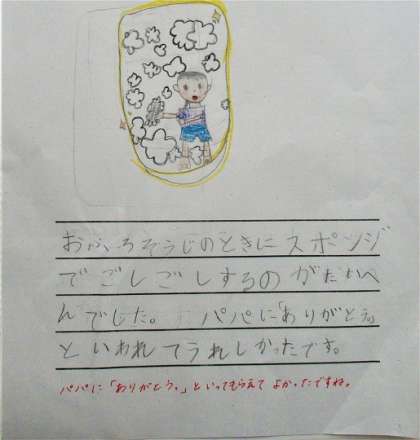 おふろそうじのときにスポンジ
でごしごしするのがたいへ
んでした。パパに「ありがとう。」
といわれてうれしかったです。
パパに「ありがとう。」といってもらえてよかったですね。